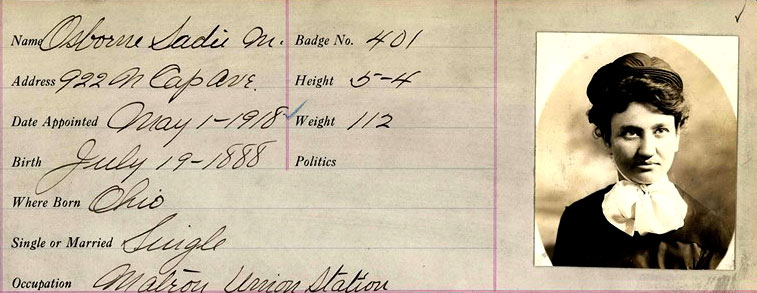 Name Osborne Sadie M. Badge No. 401
Address 922 N Cap Ave. Height 5-4
Date Appointed May 1-1918 Weight 112
Birth July 19-1888 Politics
Where Born Ohio
Single or Married Single
Occupation Matron Union Station